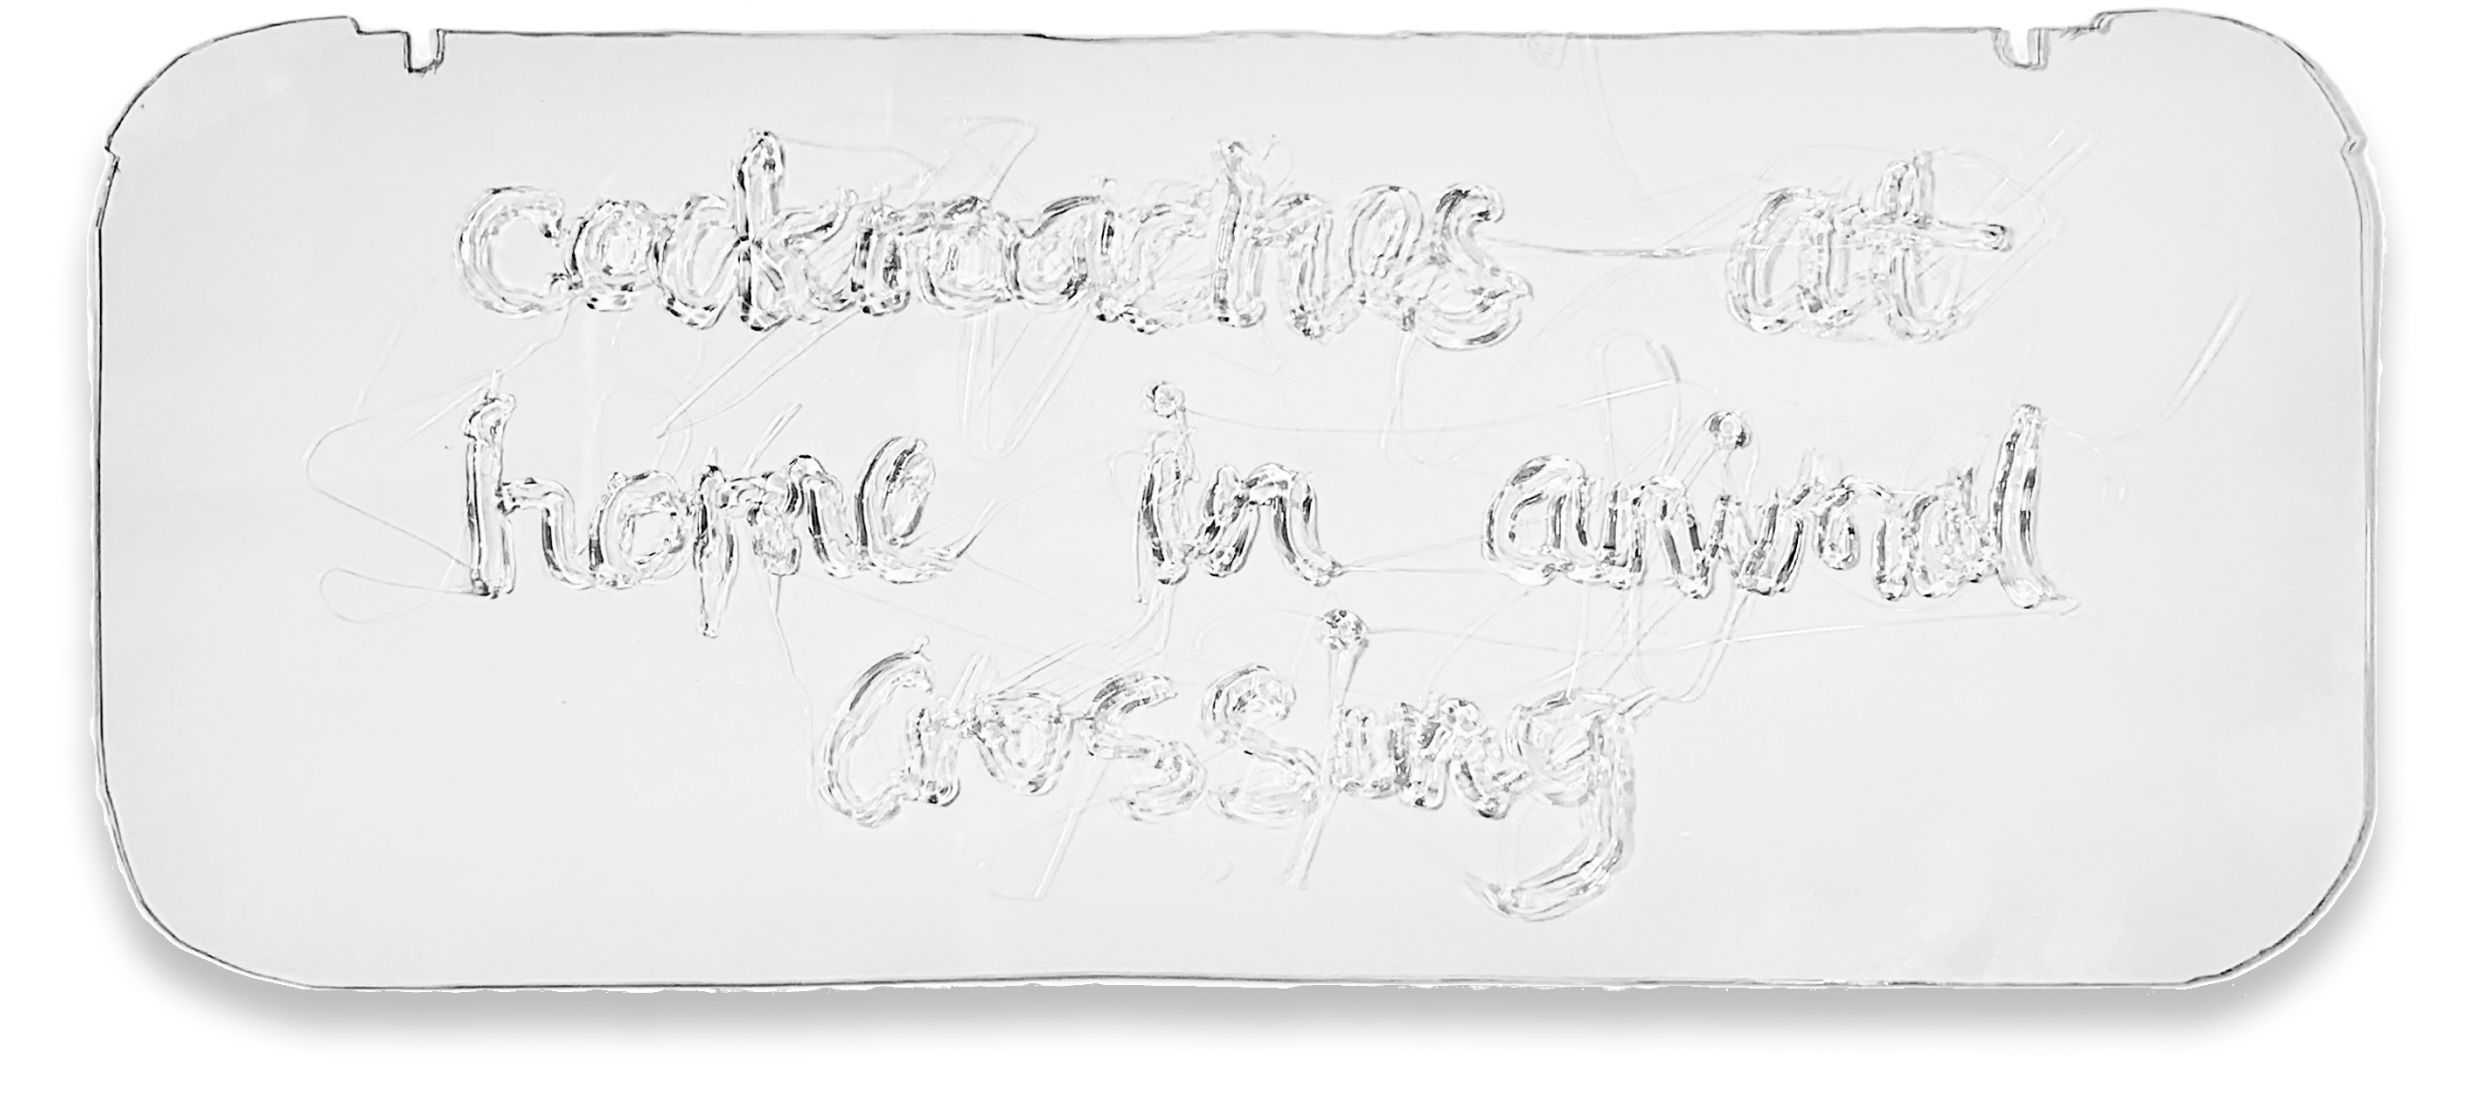 cockroaches at
home in animal
Crossing